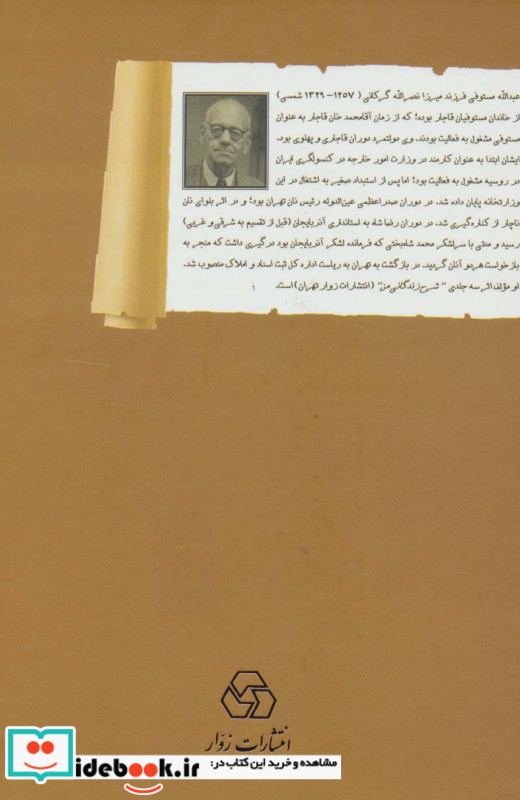 عبدالله مستوفی فرزند میرزا نصرالله گرکانی (۱۲۵۷- ۱۳۲۹ شمسی)
از خاندان مستوفیان قاجار بوده؛ که از زمان آقامحمد خان قاجار به عنوان
مستوفی مشغول به فعالیت بودند. وی دولتمرد دوران قاجاری و پهلوی بود.
ایشان ابتدا به عنوان کارمند در وزارت امور خارجه در کنسولگری ایران
در روسیه مشغول به فعالیت بود؛ اما پس از استبداد صغیر به اشتغال در این
وزارتخانه پایان داده شد. در دوران صدراعظمی عین‌الدوله رئیس نان تهران بود؛ و در اثر بلوای نان
ناچار از کناره‌گیری شد. در دوران رضا شاه به استانداری آذربایجان (قبل از تقسیم به شرقی و غربی)
رسید و مدتی با سرلشکر محمد شاه‌بختی که فرمانده لشکر آذربایجان بود درگیری داشت که منجر به
بازخواست هر دو آنان گردید. در بازگشت به تهران به ریاست اداره کل ثبت اسناد و املاک منصوب شد.
او مؤلف اثر سه جلدی " شرح زندگانی من" (انتشارات زوار تهران) است.
انتشارات زوّار
مشاهده و خرید این کتاب در:
idebook.ir